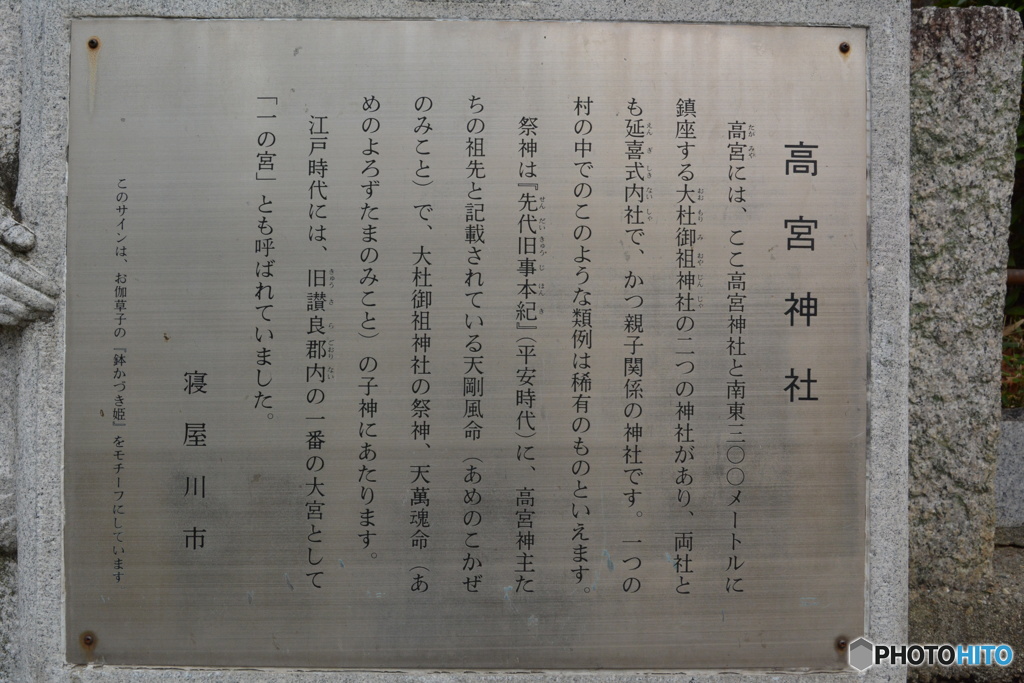 高宮神社
高宮には、ここ高宮神社と南東三〇〇メートルに
鎮座する大杜御祖神社の二つの神社があり、両社と
も延喜式内社で、かつ親子関係の神社です。一つの
村の中でのこのような類例は稀有のものといえます。
祭神は『先代旧事本紀』(平安時代)に、高宮神主た
ちの祖先と記載されている天剛風命(あめのこかぜ
のみこと)で、大杜御祖神社の祭神、天萬魂命(あ
めのよろずたまのみこと)の子神にあたります。
江戸時代には、旧讃良郡内の一番の大宮として
「一の宮」とも呼ばれていました。
寝屋川市
このサインは、お伽草子の『鉢かづき姫』をモチーフにしています
PHOTOHITO